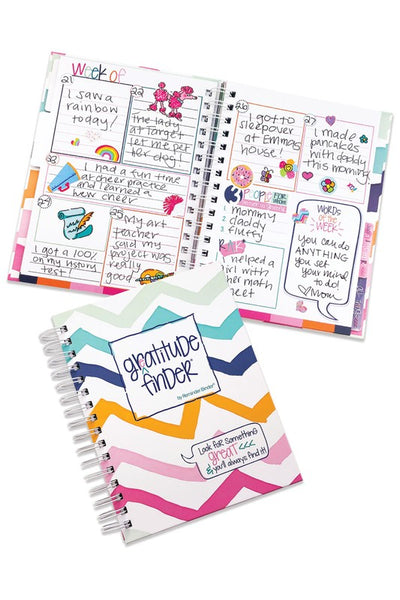 Week of
21
I saw a
rainbow
today!
22
the lady
at Target
let me pet
her dog!
23
I had a fun time
at cheer practice
and learned a
new cheer
24
I got a 100%
on my history
test!
25
My art
teacher
said my
project was
really
good
26
I got to
sleepover
at Emmas
house!
27
I made
pancakes
with daddy
this morning
PEOPLE I'M
mommy
daddy
fluffy
I helped a
girl with
her math
facts
WORDS
of the
WEEK
you can do
ANYTHING
you set
your mind
to do!
Mom
gratitude
finder®
by Reminder Binder®
Look for something
great <<<
& you'll always find it!